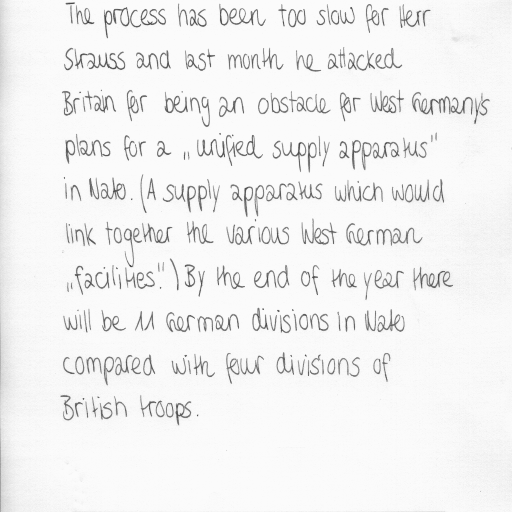 The process has been too slow for Herr
Strauss and last month he attacked
Britain for being an obstacle for West Germany's
plans for a „unified supply apparatus"
in Nato. (A supply apparatus which would
link together the various West German
„facilities".) By the end of the year there
will be 11 German divisions in Nato
compared with four divisions of
British troops.